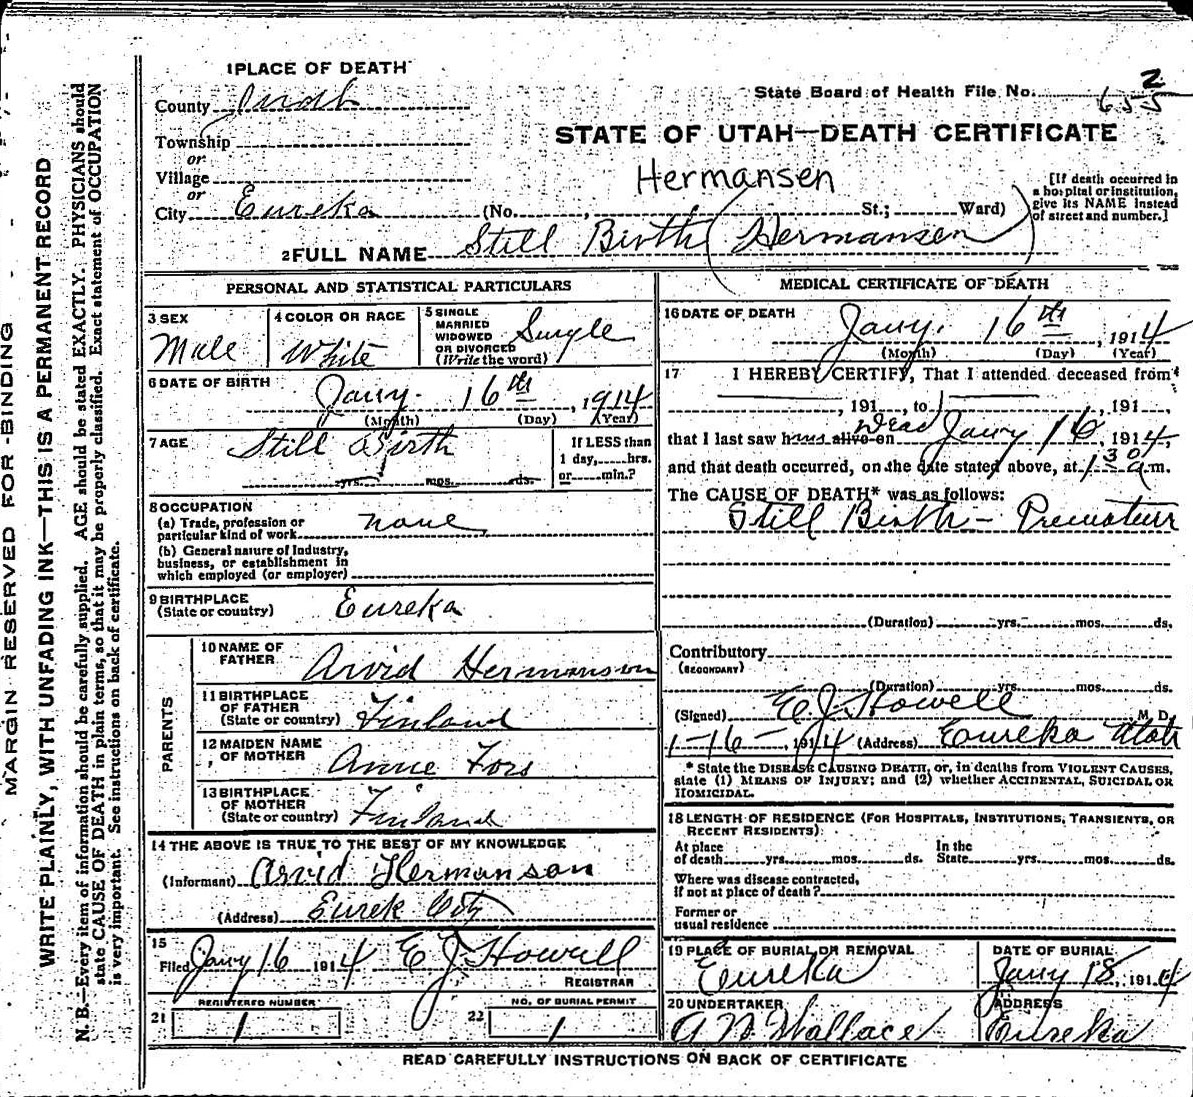 MARGIN RESERVED FOR BINDING
WRITE PLAINLY, WITH UNFADING INK—THIS IS A PERMANENT RECORD
N. B.—Every item of information should be carefully supplied. AGE should be stated EXACTLY. PHYSICIANS should
state CAUSE OF DEATH in plain terms, so that it may be properly classified. Exact statement of OCCUPATION
is very important. See instructions on back of certificate.
1 PLACE OF DEATH
County Juab
Township
or
Village
or
City Eureka (No. , St.; Ward)
State Board of Health File No. 2
655
STATE OF UTAH—DEATH CERTIFICATE
Hermansen
[If death occurred in
a hospital or institution,
give its NAME instead
of street and number.]
2 FULL NAME Still Birth (Hermansen)
PERSONAL AND STATISTICAL PARTICULARS
3 SEX Male
4 COLOR OR RACE White
5 SINGLE
MARRIED
WIDOWED
OR DIVORCED
(Write the word) Single
6 DATE OF BIRTH Jany. 16th, 1914
(Month) (Day) (Year)
7 AGE Still Birth
yrs. mos. ds.
If LESS than
1 day, hrs.
or min.?
8 OCCUPATION
(a) Trade, profession or
particular kind of work none
(b) General nature of industry,
business, or establishment in
which employed (or employer)
9 BIRTHPLACE
(State or country) Eureka
PARENTS
10 NAME OF
FATHER Arvid Hermanson
11 BIRTHPLACE
OF FATHER
(State or country) Finland
12 MAIDEN NAME
OF MOTHER Annie Fors
13 BIRTHPLACE
OF MOTHER
(State or country) Finland
14 THE ABOVE IS TRUE TO THE BEST OF MY KNOWLEDGE
(Informant) Arvid Hermanson
(Address) Eurek City
15
Filed Jany 16 1914 E J Howell
REGISTRAR
REGISTERED NUMBER
21 1
NO. OF BURIAL PERMIT
22 1
MEDICAL CERTIFICATE OF DEATH
16 DATE OF DEATH
Jany. 16th, 1914
(Month) (Day) (Year)
17 I HEREBY CERTIFY, That I attended deceased from
, 191 , to , 191 ,
that I last saw him alive on Dead Jany 16, 1914,
and that death occurred, on the date stated above, at 1 30 a m.
The CAUSE OF DEATH* was as follows:
Still Birth - Premature
(Duration) yrs. mos. ds.
Contributory
(SECONDARY)
(Duration) yrs. mos. ds.
(Signed) E J Howell M. D.
1-16-, 1914 (Address) Eureka Utah
* State the DISEASE CAUSING DEATH, or, in deaths from VIOLENT CAUSES,
state (1) MEANS OF INJURY; and (2) whether ACCIDENTAL, SUICIDAL OR
HOMICIDAL.
18 LENGTH OF RESIDENCE (FOR HOSPITALS, INSTITUTIONS, TRANSIENTS, OR
RECENT RESIDENTS)
At place
of death yrs. mos. ds.
In the
State yrs. mos. ds.
Where was disease contracted,
if not at place of death?
Former or
usual residence
19 PLACE OF BURIAL OR REMOVAL
Eureka
DATE OF BURIAL
Jany 18, 1914
20 UNDERTAKER
A N Wallace
ADDRESS
Eureka
READ CAREFULLY INSTRUCTIONS ON BACK OF CERTIFICATE